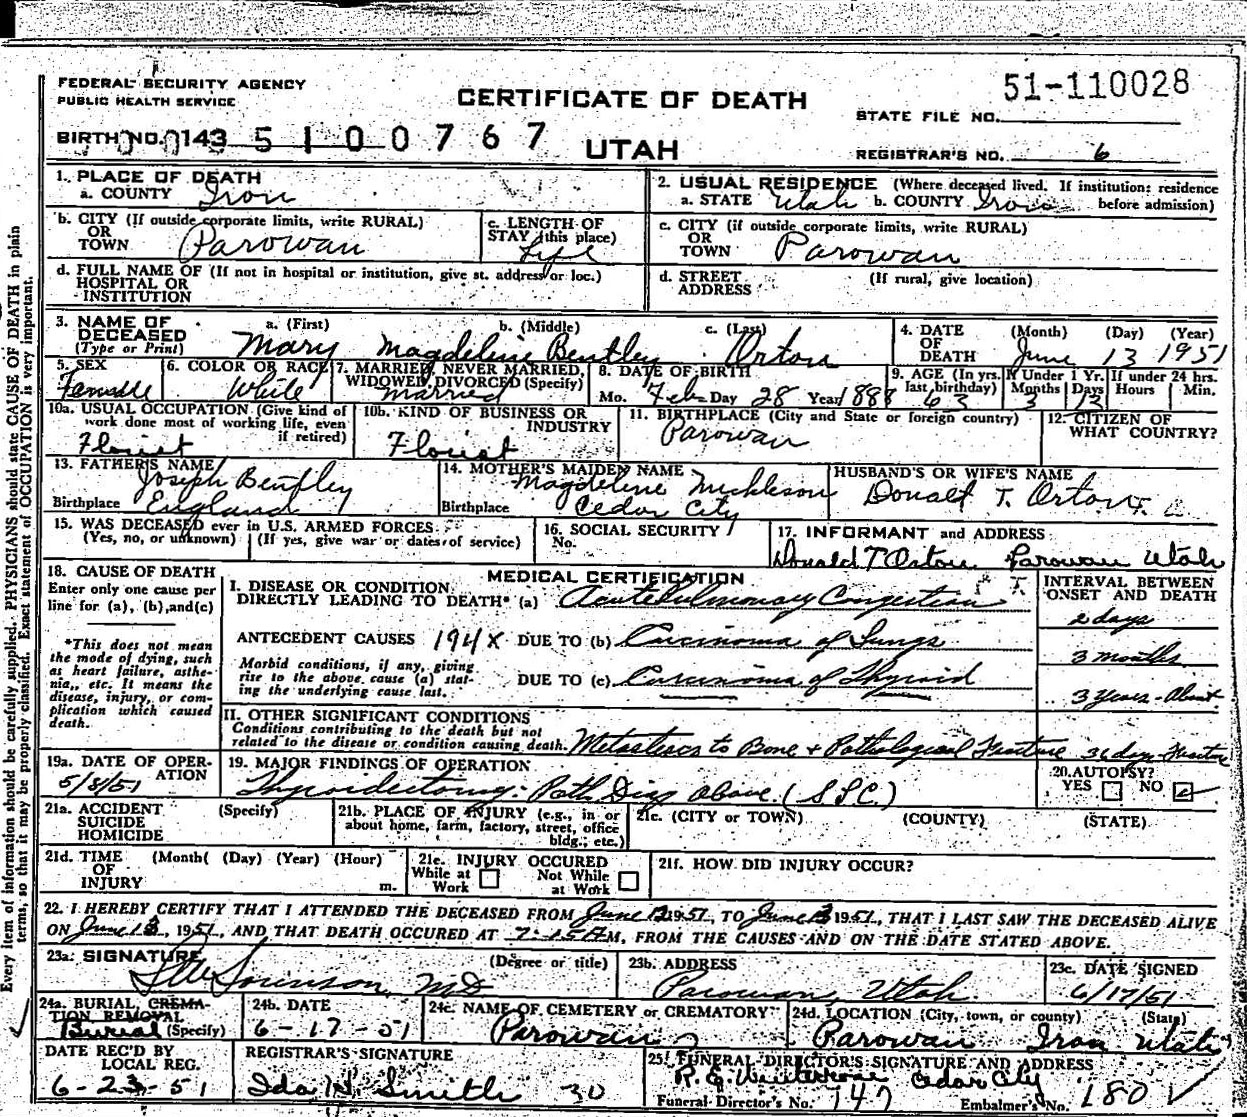 FEDERAL SECURITY AGENCY
PUBLIC HEALTH SERVICE
CERTIFICATE OF DEATH
51-110028
STATE FILE NO.
BIRTH NO. 143 5100767
UTAH
REGISTRAR'S NO. 6
1. PLACE OF DEATH
a. COUNTY Iron
2. USUAL RESIDENCE (Where deceased lived. If institution: residence before admission)
a. STATE Utah b. COUNTY Iron
b. CITY (If outside corporate limits, write RURAL)
OR
TOWN Parowan
c. LENGTH OF
STAY (this place)
Life
c. CITY (if outside corporate limits, write RURAL)
OR
TOWN Parowan
d. FULL NAME OF (If not in hospital or institution, give st. address or loc.)
HOSPITAL OR
INSTITUTION
d. STREET (If rural, give location)
ADDRESS
3. NAME OF
DECEASED
(Type or Print)
a. (First) b. (Middle) c. (Last)
Mary Magdeline Bentley Orton
4. DATE
OF
DEATH
(Month) (Day) (Year)
June 13 1951
5. SEX
Female
6. COLOR OR RACE
White
7. MARRIED, NEVER MARRIED,
WIDOWED, DIVORCED (Specify)
Married
8. DATE OF BIRTH
Mo. Feb Day 28 Year 1888
9. AGE (In yrs.
last birthday)
63
If Under 1 Yr.
Months Days
3 13
If under 24 hrs.
Hours Min.
10a. USUAL OCCUPATION (Give kind of
work done most of working life, even
if retired)
Florist
10b. KIND OF BUSINESS OR
INDUSTRY
Florist
11. BIRTHPLACE (City and State or foreign country)
Parowan
12. CITIZEN OF
WHAT COUNTRY?
13. FATHER'S NAME
Joseph Bentley
Birthplace England
14. MOTHER'S MAIDEN NAME
Magdeline
Birthplace Cedar City
HUSBAND'S OR WIFE'S NAME
Donald T. Orton
15. WAS DECEASED ever in U.S. ARMED FORCES
(Yes, no, or unknown) (If yes, give war or dates of service)
16. SOCIAL SECURITY
No.
17. INFORMANT and ADDRESS
Donald T Orton Parowan Utah
18. CAUSE OF DEATH
Enter only one cause per
line for (a), (b), and (c)
*This does not mean
the mode of dying, such
as heart failure, asthe-
nia, etc. It means the
disease, injury, or com-
plication which caused
death.
MEDICAL CERTIFICATION
I. DISEASE OR CONDITION
DIRECTLY LEADING TO DEATH* (a) Acute Pulmonary Congestion
ANTECEDENT CAUSES 194X DUE TO (b) Carcinoma of Lungs
Morbid conditions, if any, giving
rise to the above cause (a) stat-
ing the underlying cause last.
DUE TO (c) Carcinoma of Thyroid
INTERVAL BETWEEN
ONSET AND DEATH
2 days
3 months
3 years - About
II. OTHER SIGNIFICANT CONDITIONS
Conditions contributing to the death but not
related to the disease or condition causing death. Metastises to Bone + Pathological Fracture
19a. DATE OF OPER-
ATION
5/8/51
19. MAJOR FINDINGS OF OPERATION
Thyroidectomy: Path Diag Above.
20. AUTOPSY?
YES NO
21a. ACCIDENT (Specify)
SUICIDE
HOMICIDE
21b. PLACE OF INJURY (e.g., in or
about home, farm, factory, street, office
bldg.; etc.)
21c. (CITY or TOWN) (COUNTY) (STATE)
21d. TIME (Month) (Day) (Year) (Hour)
OF
INJURY m.
21e. INJURY OCCURED
While at Work Not While at Work
21f. HOW DID INJURY OCCUR?
22. I HEREBY CERTIFY THAT I ATTENDED THE DECEASED FROM June 1951, TO June 13 1951, THAT I LAST SAW THE DECEASED ALIVE
ON June 13, 1951, AND THAT DEATH OCCURED AT 7:15 AM, FROM THE CAUSES AND ON THE DATE STATED ABOVE.
23a. SIGNATURE (Degree or title)
MD
23b. ADDRESS
Parowan, Utah
23c. DATE SIGNED
6/17/51
24a. BURIAL, CREMA-
TION REMOVAL
Burial (Specify)
24b. DATE
6-17-51
24c. NAME OF CEMETERY or CREMATORY
Parowan
24d. LOCATION (City, town, or county) (State)
Parowan Iron Utah
DATE REC'D BY
LOCAL REG.
6-23-51
REGISTRAR'S SIGNATURE
Ida N. Smith 30
25. FUNERAL DIRECTOR'S SIGNATURE AND ADDRESS
Cedar City
Funeral Director's No. 147 Embalmer's No. 180
Every item of information should be carefully supplied. PHYSICIANS should state CAUSE OF DEATH in plain
terms, so that it may be properly classified. Exact statement of OCCUPATION is very important.